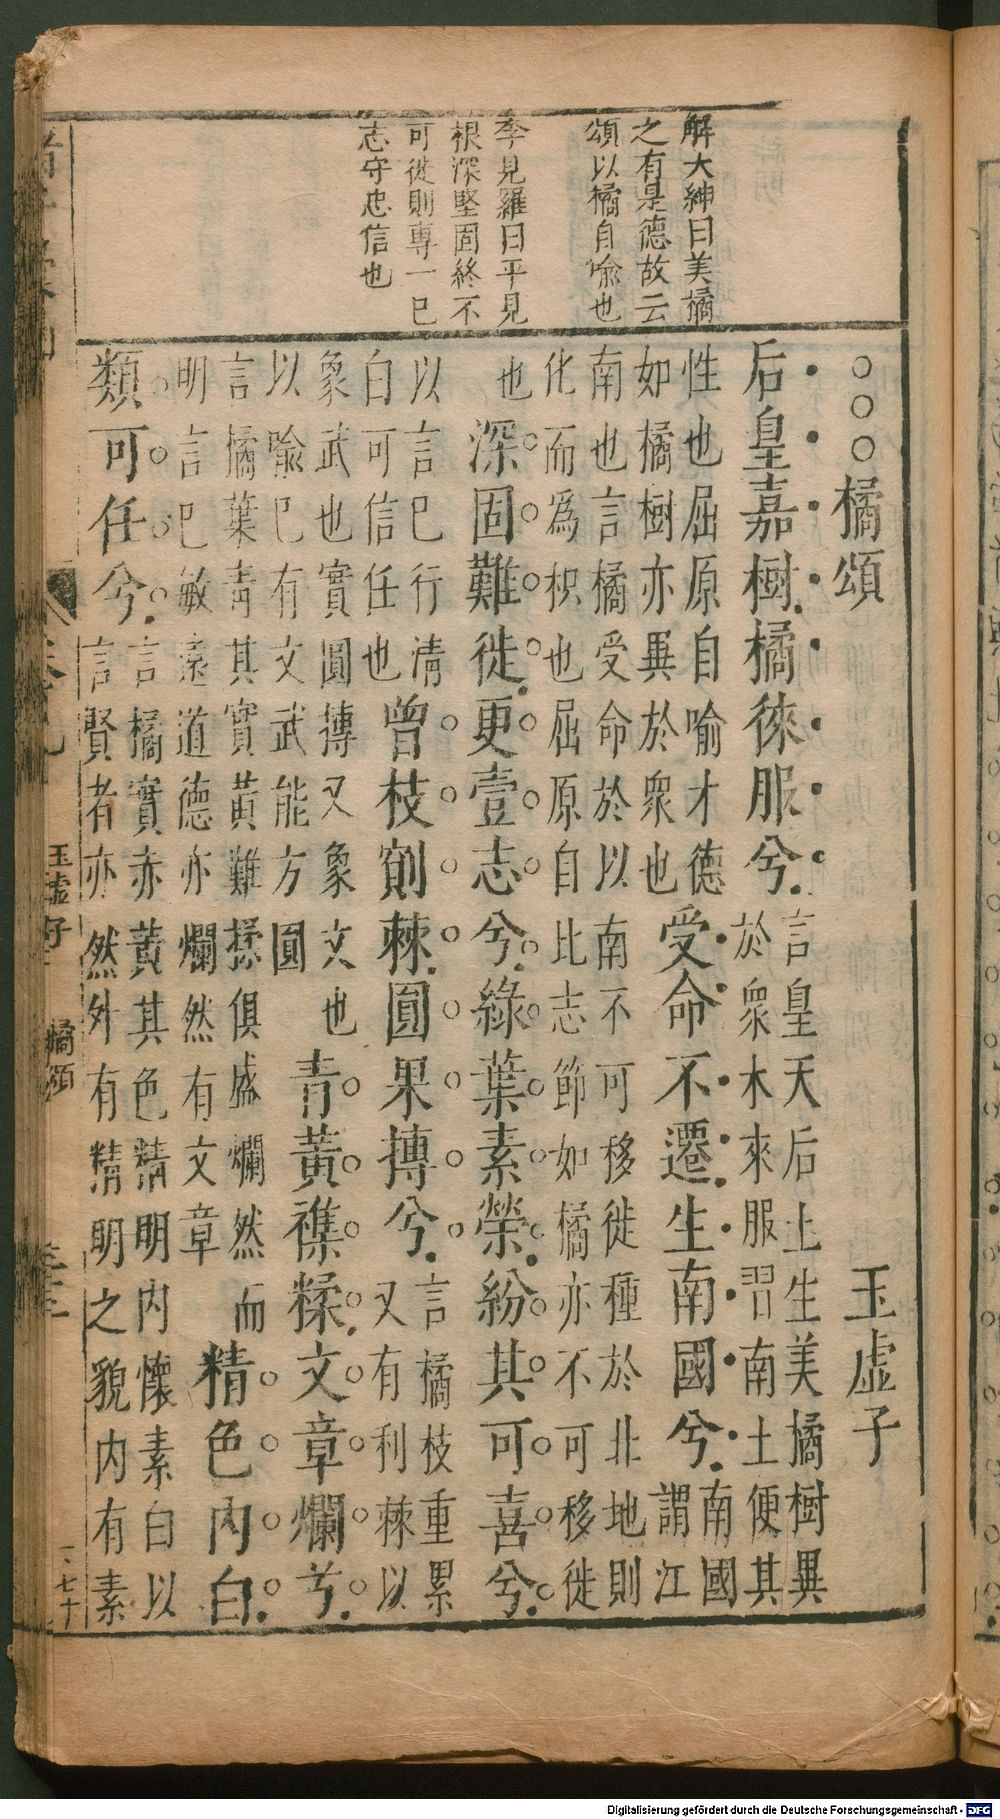 解大紳曰美橘
之有是德故云
頌以橘自喻也
李見羅曰平見
根深堅固終不
可徙則專一已
志守忠信也
○○○橘頌 玉虛子
后皇嘉樹橘徠服兮
言皇天后土生美橘樹異
於衆木來服習南土便其
性也屈原自喻才德
如橘樹亦異於衆也
受命不遷生南國兮
南國
謂江
南也言橘受命於以南不可移徙種於北地則
化而爲枳也屈原自比志節如橘亦不可移徙
也
深固難徙更壹志兮綠葉素榮紛其可喜兮
以言已行清
白可信任也
曾枝剡棘圓果摶兮
言橘枝重累
又有利棘以
象武也實圓摶又象文也
以喻已有文武能方圓
青黃襍糅文章爛兮
言橘葉青其實黃難揉俱盛爛然而
明言已敏達道德亦爛然有文章
精色内白
類可任兮
言橘實赤黃其色精明内懷素白以
言賢者亦然外有精明之貌内有素
玉虛子 橘頌
Digitalisierung gefördert durch die Deutsche Forschungsgemeinschaft - DFG